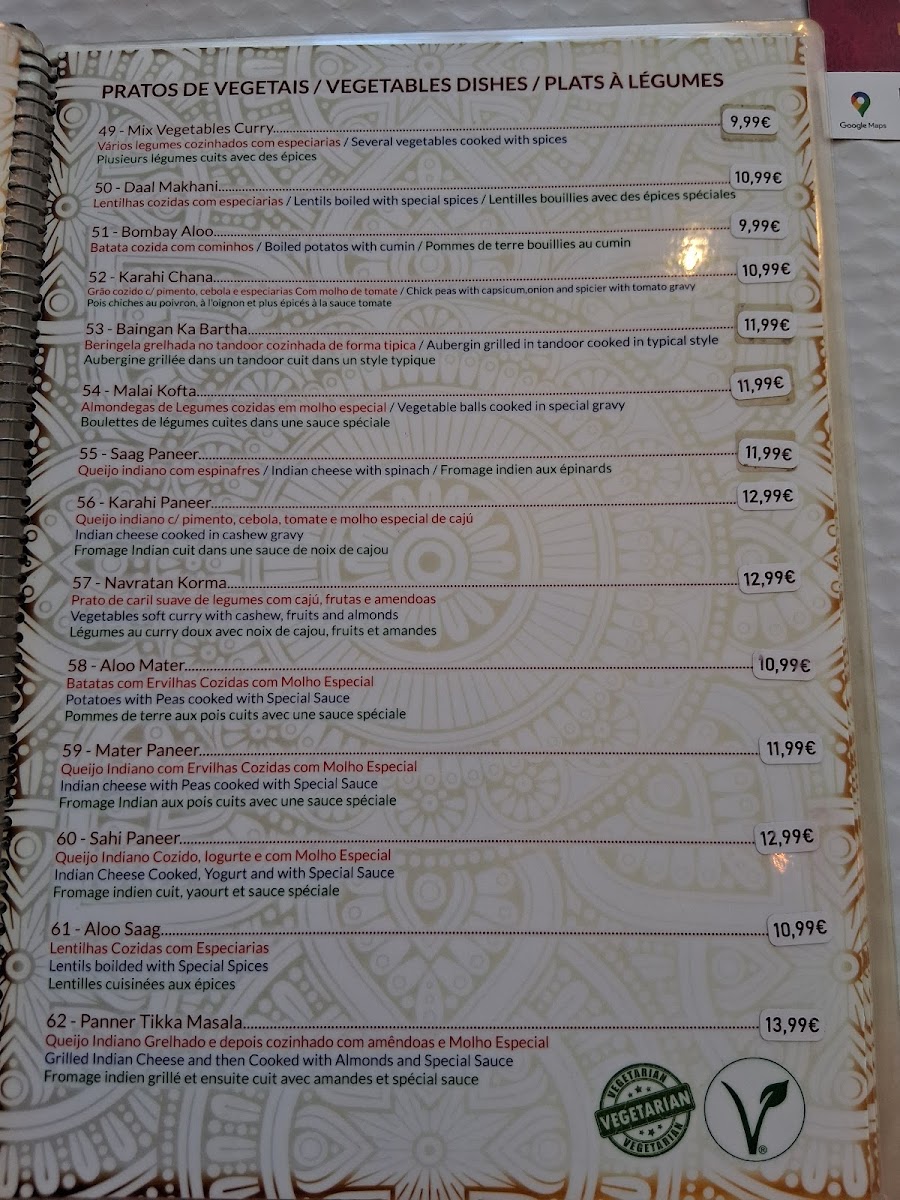 PRATOS DE VEGETAIS / VEGETABLES DISHES / PLATS À LÉGUMES
49 - Mix Vegetables Curry 9,99€
Vários legumes cozinhados com especiarias / Several vegetables cooked with spices
Plusieurs légumes cuits avec des épices
50 - Daal Makhani 10,99€
Lentilhas cozidas com especiarias / Lentils boiled with special spices / Lentilles bouillies avec des épices spéciales
51 - Bombay Aloo 9,99€
Batata cozida com cominhos / Boiled potatos with cumin / Pommes de terre bouillies au cumin
52 - Karahi Chana 10,99€
Grão cozido c/ pimento, cebola e especiarias Com molho de tomate / Chick peas with capsicum,onion and spicier with tomato gravy
Pois chiches au poivron, à l'oignon et plus épicés à la sauce tomate
53 - Baingan Ka Bartha 11,99€
Beringela grelhada no tandoor cozinhada de forma tipica / Aubergin grilled in tandoor cooked in typical style
Aubergine grillée dans un tandoor cuit dans un style typique
54 - Malai Kofta 11,99€
Almondegas de Legumes cozidas em molho especial / Vegetable balls cooked in special gravy
Boulettes de légumes cuites dans une sauce spéciale
55 - Saag Paneer 11,99€
Queijo indiano com espinafres / Indian cheese with spinach / Fromage indien aux épinards
56 - Karahi Paneer 12,99€
Queijo indiano c/ pimento, cebola, tomate e molho especial de cajú
Indian cheese cooked in cashew gravy
Fromage Indian cuit dans une sauce de noix de cajou
57 - Navratan Korma 12,99€
Prato de caril suave de legumes com cajú, frutas e amendoas
Vegetables soft curry with cashew, fruits and almonds
Légumes au curry doux avec noix de cajou, fruits et amandes
58 - Aloo Mater 10,99€
Batatas com Ervilhas Cozidas com Molho Especial
Potatoes with Peas cooked with Special Sauce
Pommes de terre aux pois cuits avec une sauce spéciale
59 - Mater Paneer 11,99€
Queijo Indiano com Ervilhas Cozidas com Molho Especial
Indian cheese with Peas cooked with Special Sauce
Fromage Indian aux pois cuits avec une sauce spéciale
60 - Sahi Paneer 12,99€
Queijo Indiano Cozido, Iogurte e com Molho Especial
Indian Cheese Cooked, Yogurt and with Special Sauce
Fromage indien cuit, yaourt et sauce spéciale
61 - Aloo Saag 10,99€
Lentilhas Cozidas com Especiarias
Lentils boilded with Special Spices
Lentilles cuisinées aux épices
62 - Panner Tikka Masala 13,99€
Queijo Indiano Grelhado e depois cozinhado com amêndoas e Molho Especial
Grilled Indian Cheese and then Cooked with Almonds and Special Sauce
Fromage indien grillé et ensuite cuit avec amandes et spécial sauce
VEGETARIAN
VEGETARIAN
VEGETARIAN
®
Google Maps